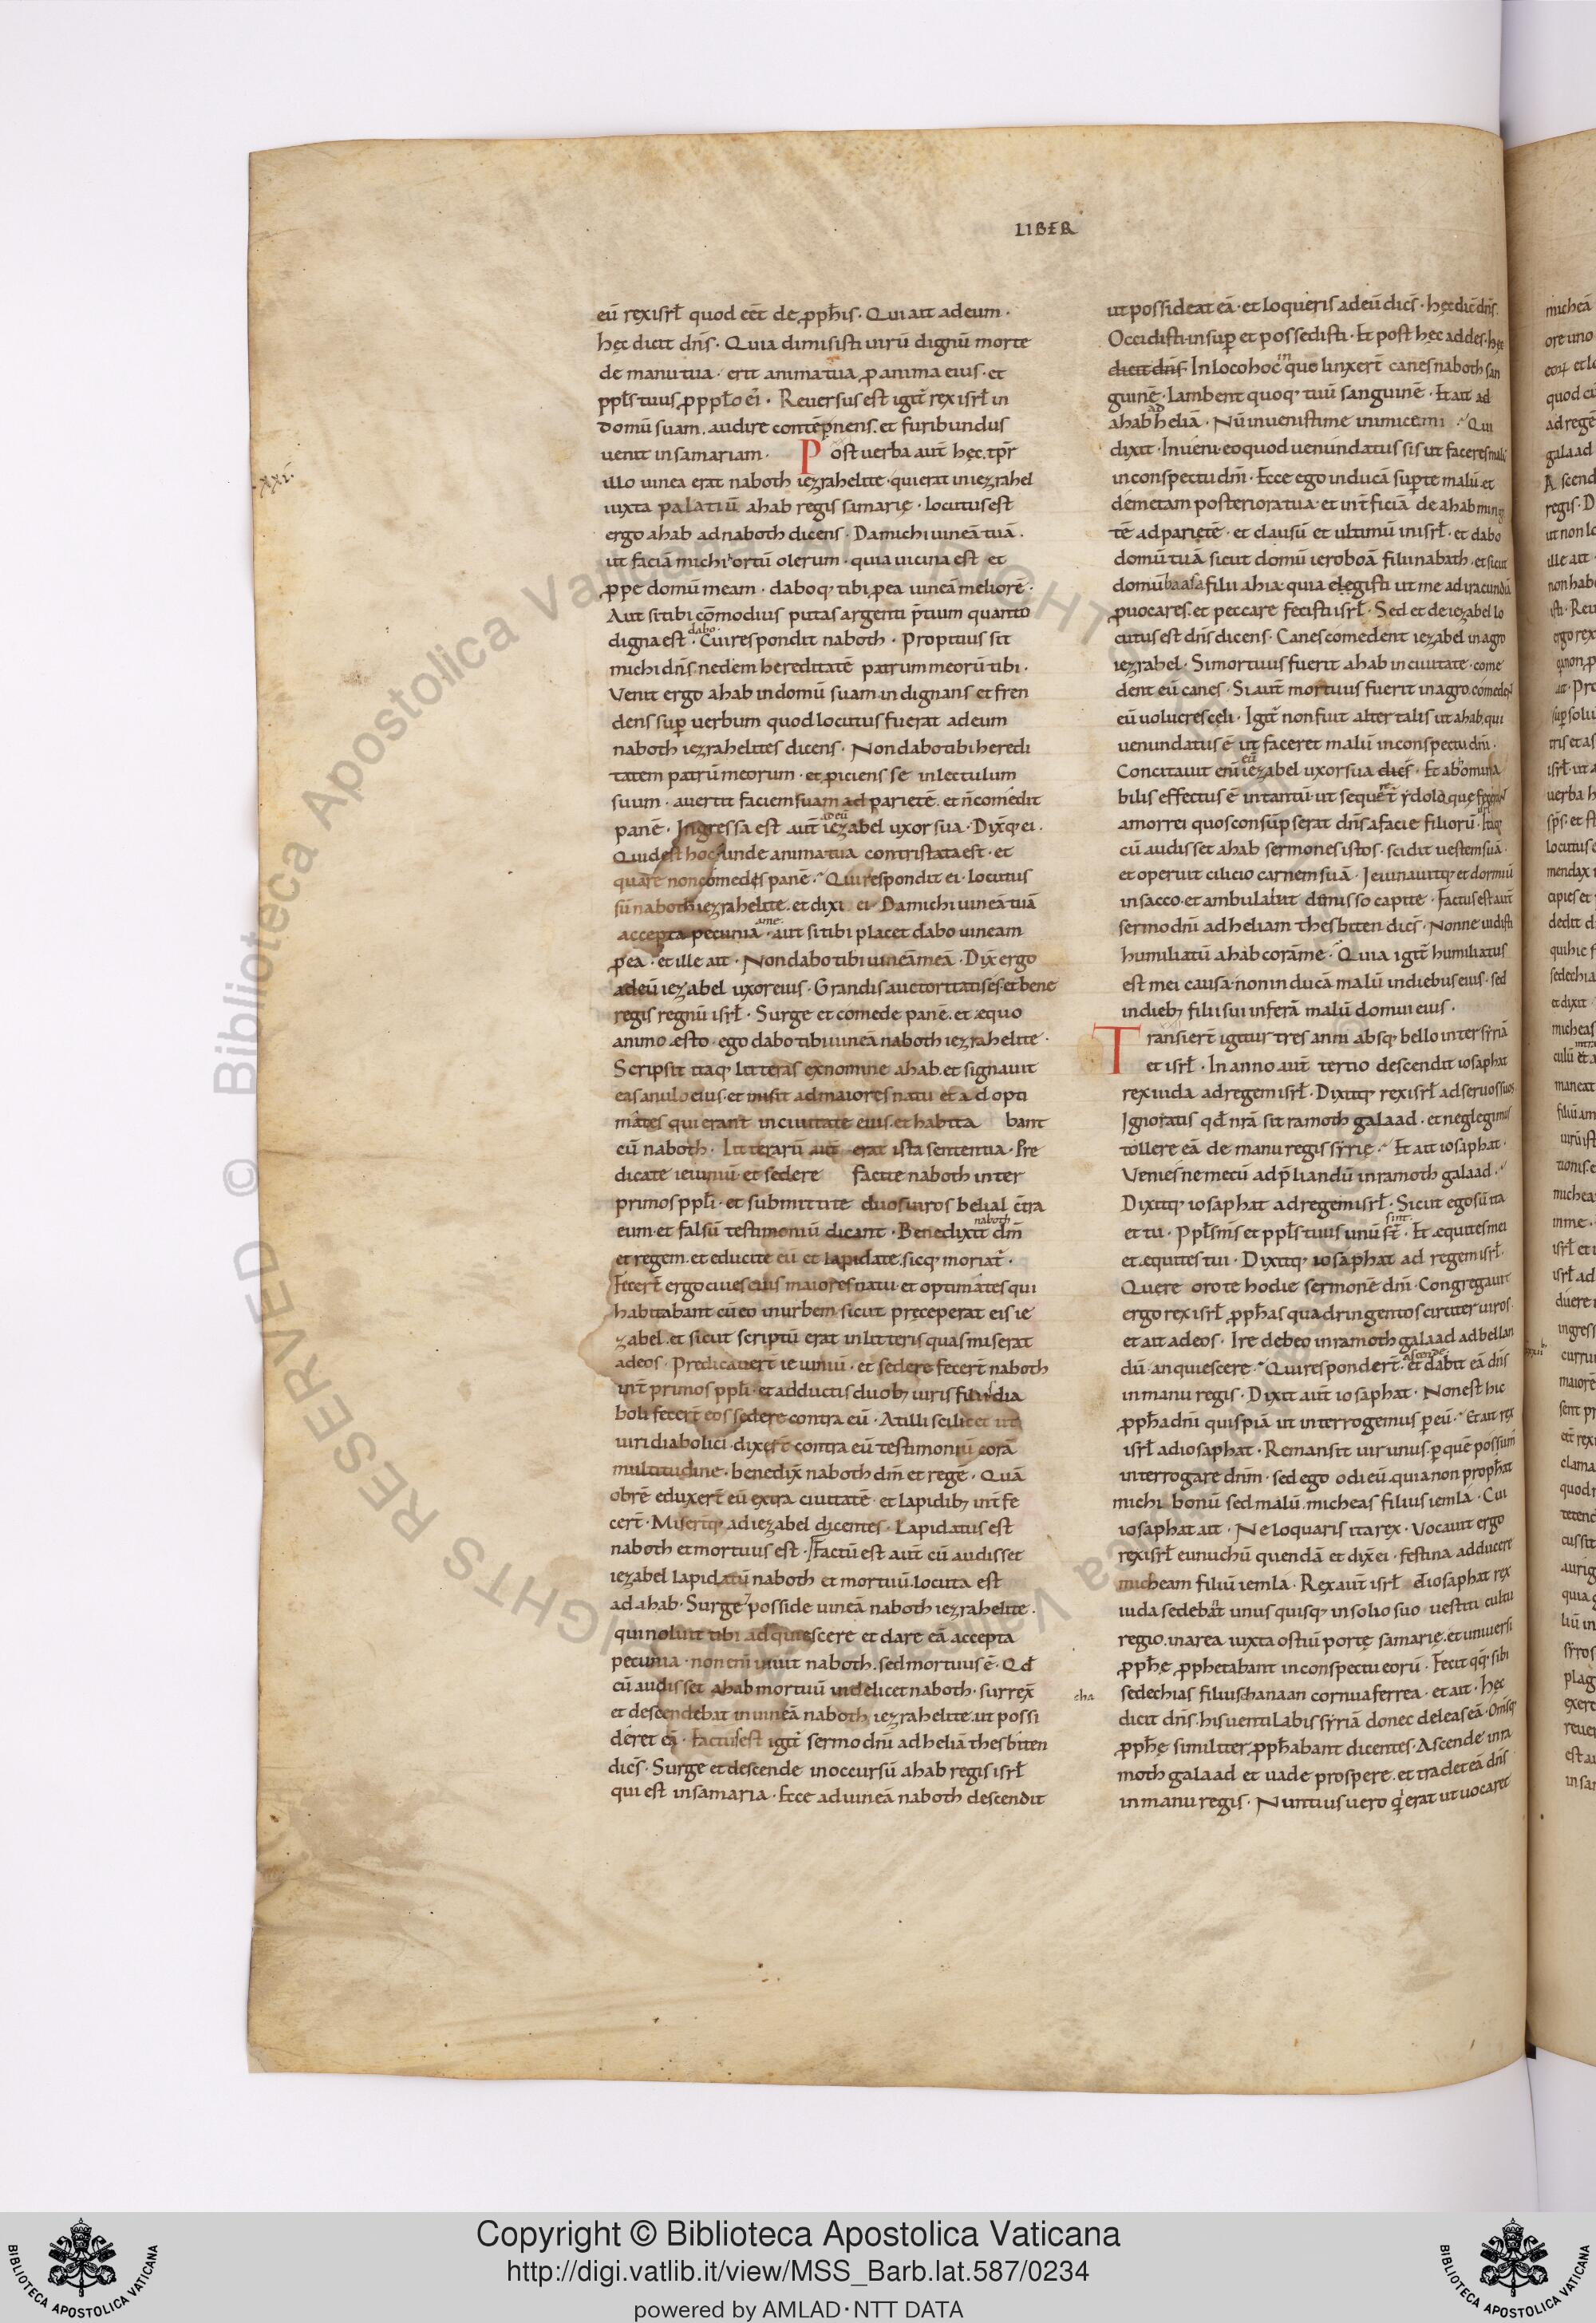 LIBER
eū rex isrł quod eēt de ꝓph̄is · Qui ait ad eum ·
hęc dicit dn̄s · Quia dimisisti uirū dignū morte
de manu tua · erit anima tua ꝓ anima eius · et
ppl̄s tuus ꝓ ppl̄o ei · Reuersus est igit̄ rex isrł in
domū suam . audire contēpnens . et furibundus
uenit in samariam · Post uerba aut̄ hęc . tp̄r
.xxi.
illo uinea erat naboth iezrahelite · qui erat in iezrahel
iuxta palatiū ahab regis samarię · locutus est
ergo ahab ad naboth dicens · Da michi uineā tuā ·
ut faciā michi ortū olerum · quia uicina est et
ꝓpe domū meam · daboq; tibi ꝓ ea uineā meliorē ·
Aut si tibi cōmodius putas argenti p̄tium quanto
digna est · dabo · Cui respondit naboth · Propitius sit
michi dn̄s · ne dem hereditatē patrum meorū tibi ·
Venit ergo ahab in domū suam · in dignans et fren
dens suꝑ uerbum quod locutus fuerat ad eum
naboth iezrahelites dicens · Non dabo tibi heredi
tatem patrū meorum · et ꝓiciens se in lectulum
suum · auertit faciem suam ad parietē . et n̄ comedit
panē · Ingressa est aut̄ ad eū iezabel uxor sua · Dixitq; ei ·
Quid est hoc unde anima tua contristata est · et
quare non comedes panē · Qui respondit ei · Locutus
sū naboth iezrahelite . et dixi ei · Da michi uineā tuā
accepta pecunia · aut si tibi placet dabo uineam
ꝓ ea · et ille ait · Non dabo tibi uineā meā · Dix̄ ergo
ad eū iezabel uxor eius · Grandis auctoritatis es · et bene
regis regnū isrł · Surge et comede panē . et ęquo
animo ęsto · ego dabo tibi uineā naboth iezrahelite ·
Scripsit itaq; litteras ex nomine ahab . et signauit
eas anulo eius · et misit ad maiores natu et ad opti
mates qui erant in ciuitate eius . et habita bant
cū naboth · Litterarū aut̄ erat ista sententia · Pre
dicate ieiuniū · et sedere facite naboth inter
primos ppl̄i · et submittite duos uiros belial c̄tra
eum · et falsū testimoniū dicant · Benedixit naboth dm̄
et regem . et educite eū et lapidate . sicq; moriat̄ ·
Fecer̄t ergo ciues eius maiores natu · et optimates qui
habitabant cū eo in urbem · sicut pręceperat eis ie
zabel . et sicut scriptū erat in litteris quas miserat
ad eos · Predicauer̄t ieiuniū · et sedere fecer̄t naboth
int̄ primos ppl̄i · et adductis duob; uiris filiis dia
boli fecer̄t eos sedere contra eū · At illi scilicet ut
uiri diabolici · dixer̄t contra eū testimoniū corā
multitudine · benedix̄ naboth dm̄ et regē · Quā
obrē eduxer̄t eū extra ciuitatē · et lapidib; int̄fe
cer̄t · Miser̄tq; ad iezabel dicentes · Lapidatus est
naboth et mortuus est · Factū est aut̄ cū audisset
iezabel lapidatū naboth et mortuū . locuta est
ad ahab · Surge posside uineā naboth iezrahelite ·
qui noluit tibi adquiescere et dare eā accepta
pecunia · non enī uiuit naboth . sed mortuus ē · Qd̄
cū audisset ahab mortuū uidelicet naboth · surrex̄
et descendebat in uineā naboth iezrahelite . ut possi
deret eā · Factus est igit̄ sermo dn̄i ad heliā thesbiten
dic̄s · Surge et descende in occursū ahab regis isrł
qui est in samaria · Ecce ad uineā naboth descendit
ut possideat eā · et loqueris ad eū dic̄s · hęc dic̄ dn̄s
Occidisti · insuꝑ et possedisti · Et post hęc addes · hęc
dicit dn̄s · In loco hoc in quo linxer̄t canes naboth san
guinē · Lambent quoq; tuū sanguinē · Et ait ad
ahab ad heliā · Nū inuenisti me inimice mi · Qui
dixit · Inueni · eo quod uenundatus sis ut faceres malū
in conspectu dn̄i · Ecce ego inducā suꝑ te malū . et
demetam posteriora tua · et int̄ficiā de ahab ming
tē ad parietē · et clausū et ultimū in isrł · et dabo
domū tuā sicut domū ieroboā filii nabath . et sicut
domū baasa filii ahia · quia elegisti ut me ad iracundiā
ꝓuocares . et peccare fecisti isrł · Sed et de iezabel lo
cutus est dn̄s dicens · Canes comedent iezabel in agro
iezrahel · Si mortuus fuerit ahab in ciuitate · come
dent eū canes · Si aut̄ mortuus fuerit in agro . comedent
eū uolucres cęli · Igit̄ non fuit alter talis ut ahab . qui
uenundatus ē ut faceret malū in conspectu dn̄i ·
Concitauit enī eū iezabel uxor sua dic̄s · Et abomina
bilis effectus ē in tantū · ut sequer̄t ydola que fecerant
amorrei quos consūpserat dn̄s a facie filiorū isrł · Itaq;
cū audisset ahab sermones istos · scidit uestem suā ·
et operuit cilicio carnem suā · Ieiunauitq; et dormiū
in sacco · et ambulauit dimisso capite · Factus est aut̄
sermo dn̄i ad heliam thesbiten dic̄s · Nonne uidisti
humiliatū ahab corā me · Quia igit̄ humiliatus
est mei causa · non inducā malū in diebus eius · sed
in dieb; filii sui inferā malū domui eius ·
Transier̄t igitur tres anni absq; bello inter syriā
et isrł · In anno aut̄ tertio descendit iosaphat
rex iuda ad regem isrł · Dixitq; rex isrł ad seruos suos
Ignoratis qd̄ nr̄ā sit ramoth galaad · et neglegimus
tollere eā de manu regis syrię · Et ait iosaphat ·
Venies ne mecū ad p̄liandū in ramoth galaad ·
Dixitq; iosaphat ad regem isrł · Sicut ego sū ita
et tu · Ppl̄s m̄s et ppl̄s tuus unū sint · Et ęquites mei
et ęquites tui · Dixitq; iosaphat ad regem isrł ·
Quere oro te hodie sermonē dn̄i · Congregauit
ergo rex isrł ꝓph̄as quadringentos circiter uiros ·
et ait ad eos · Ire debeo in ramoth galaad ad bellan
dū · an quiescere · Qui responder̄t · ascende · et dabit eā dn̄s
in manu regis · Dixit aut̄ iosaphat · Non est hic
ꝓph̄a dn̄i quispiā ut interrogemus ꝑ eū · Et ait rex
isrł ad iosaphat · Remansit uir unus · ꝑ quē possum̄
interrogare dn̄m · sed ego odi eū . quia non proph̄at
michi bonū sed malū . micheas filius iemla · Cui
iosaphat ait · Ne loquaris ita rex · Vocauit ergo
rex isrł eunuchū quendā et dix̄ ei · festina adducere
micheam filiū iemla · Rex aut̄ isrł et iosaphat rex
iuda sedebāt unus quisq; in solio suo · uestiti cultu
regio . in area iuxta ostiū portę samarię . et uniuersi
ꝓph̄ę ꝓphetabant in conspectu eorū · Fecit qq; sibi
cha
sedechias filius chanaan cornua ferrea · et ait · hęc
dicit dn̄s · his uentilabis syriā donec deleas eā · Om̄sq;
ꝓph̄ę similiter ꝓph̄abant dicentes · Ascende in ra
moth galaad et uade prospere . et tradet eā dn̄s
in manu regis · Nuntius uero qi erat ut uocaret
Copyright © Biblioteca Apostolica Vaticana
http://digi.vatlib.it/view/MSS_Barb.lat.587/0234
powered by AMLAD·NTT DATA
BIBLIOTECA APOSTOLICA VATICANA
BIBLIOTECA APOSTOLICA VATICANA